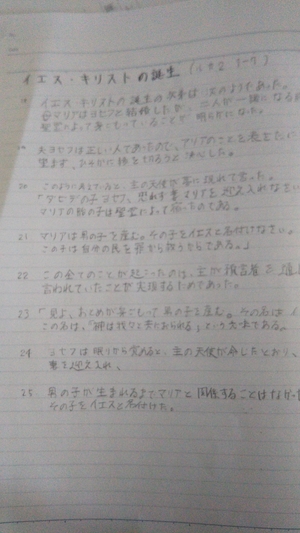 イエス・キリストの誕生 (ルカ2 1-7)
18 イエス・キリストの誕生の次第は次のようであった。
母マリアはヨセフと
聖霊によって身ごもっていることが明らかになった。
19 夫ヨセフは正しい人であったので、マリアのことを表ざたに
望まず、ひそかに縁を切ろうと決心した。
20 このように考えていると、主の天使が夢に現れて言った。
「ダビデの子ヨセフ、恐れず妻マリアを迎え入れなさい
マリアの胎の子は聖霊によって宿ったのである。
21 マリアは男の子を産む。その子をイエスと名付けなさい。
この子は自分の民を罪から救うからである。」
22 この全てのことが起こったのは、主が預言者を通
言われていたことが実現するためであった。
23 「見よ、おとめが身ごもって男の子を産む。その名は
この名は、「神は我々と共におられる」という意味である。
24 ヨセフは眠りから覚めると、主の天使が命じたとおり、
妻を迎え入れ、
25 男の子が生まれるまでマリアと関係することはなか
その子をイエスと名付けた。